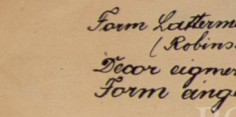 Form Latterm
(Robins
Decor eigmen
Form ang